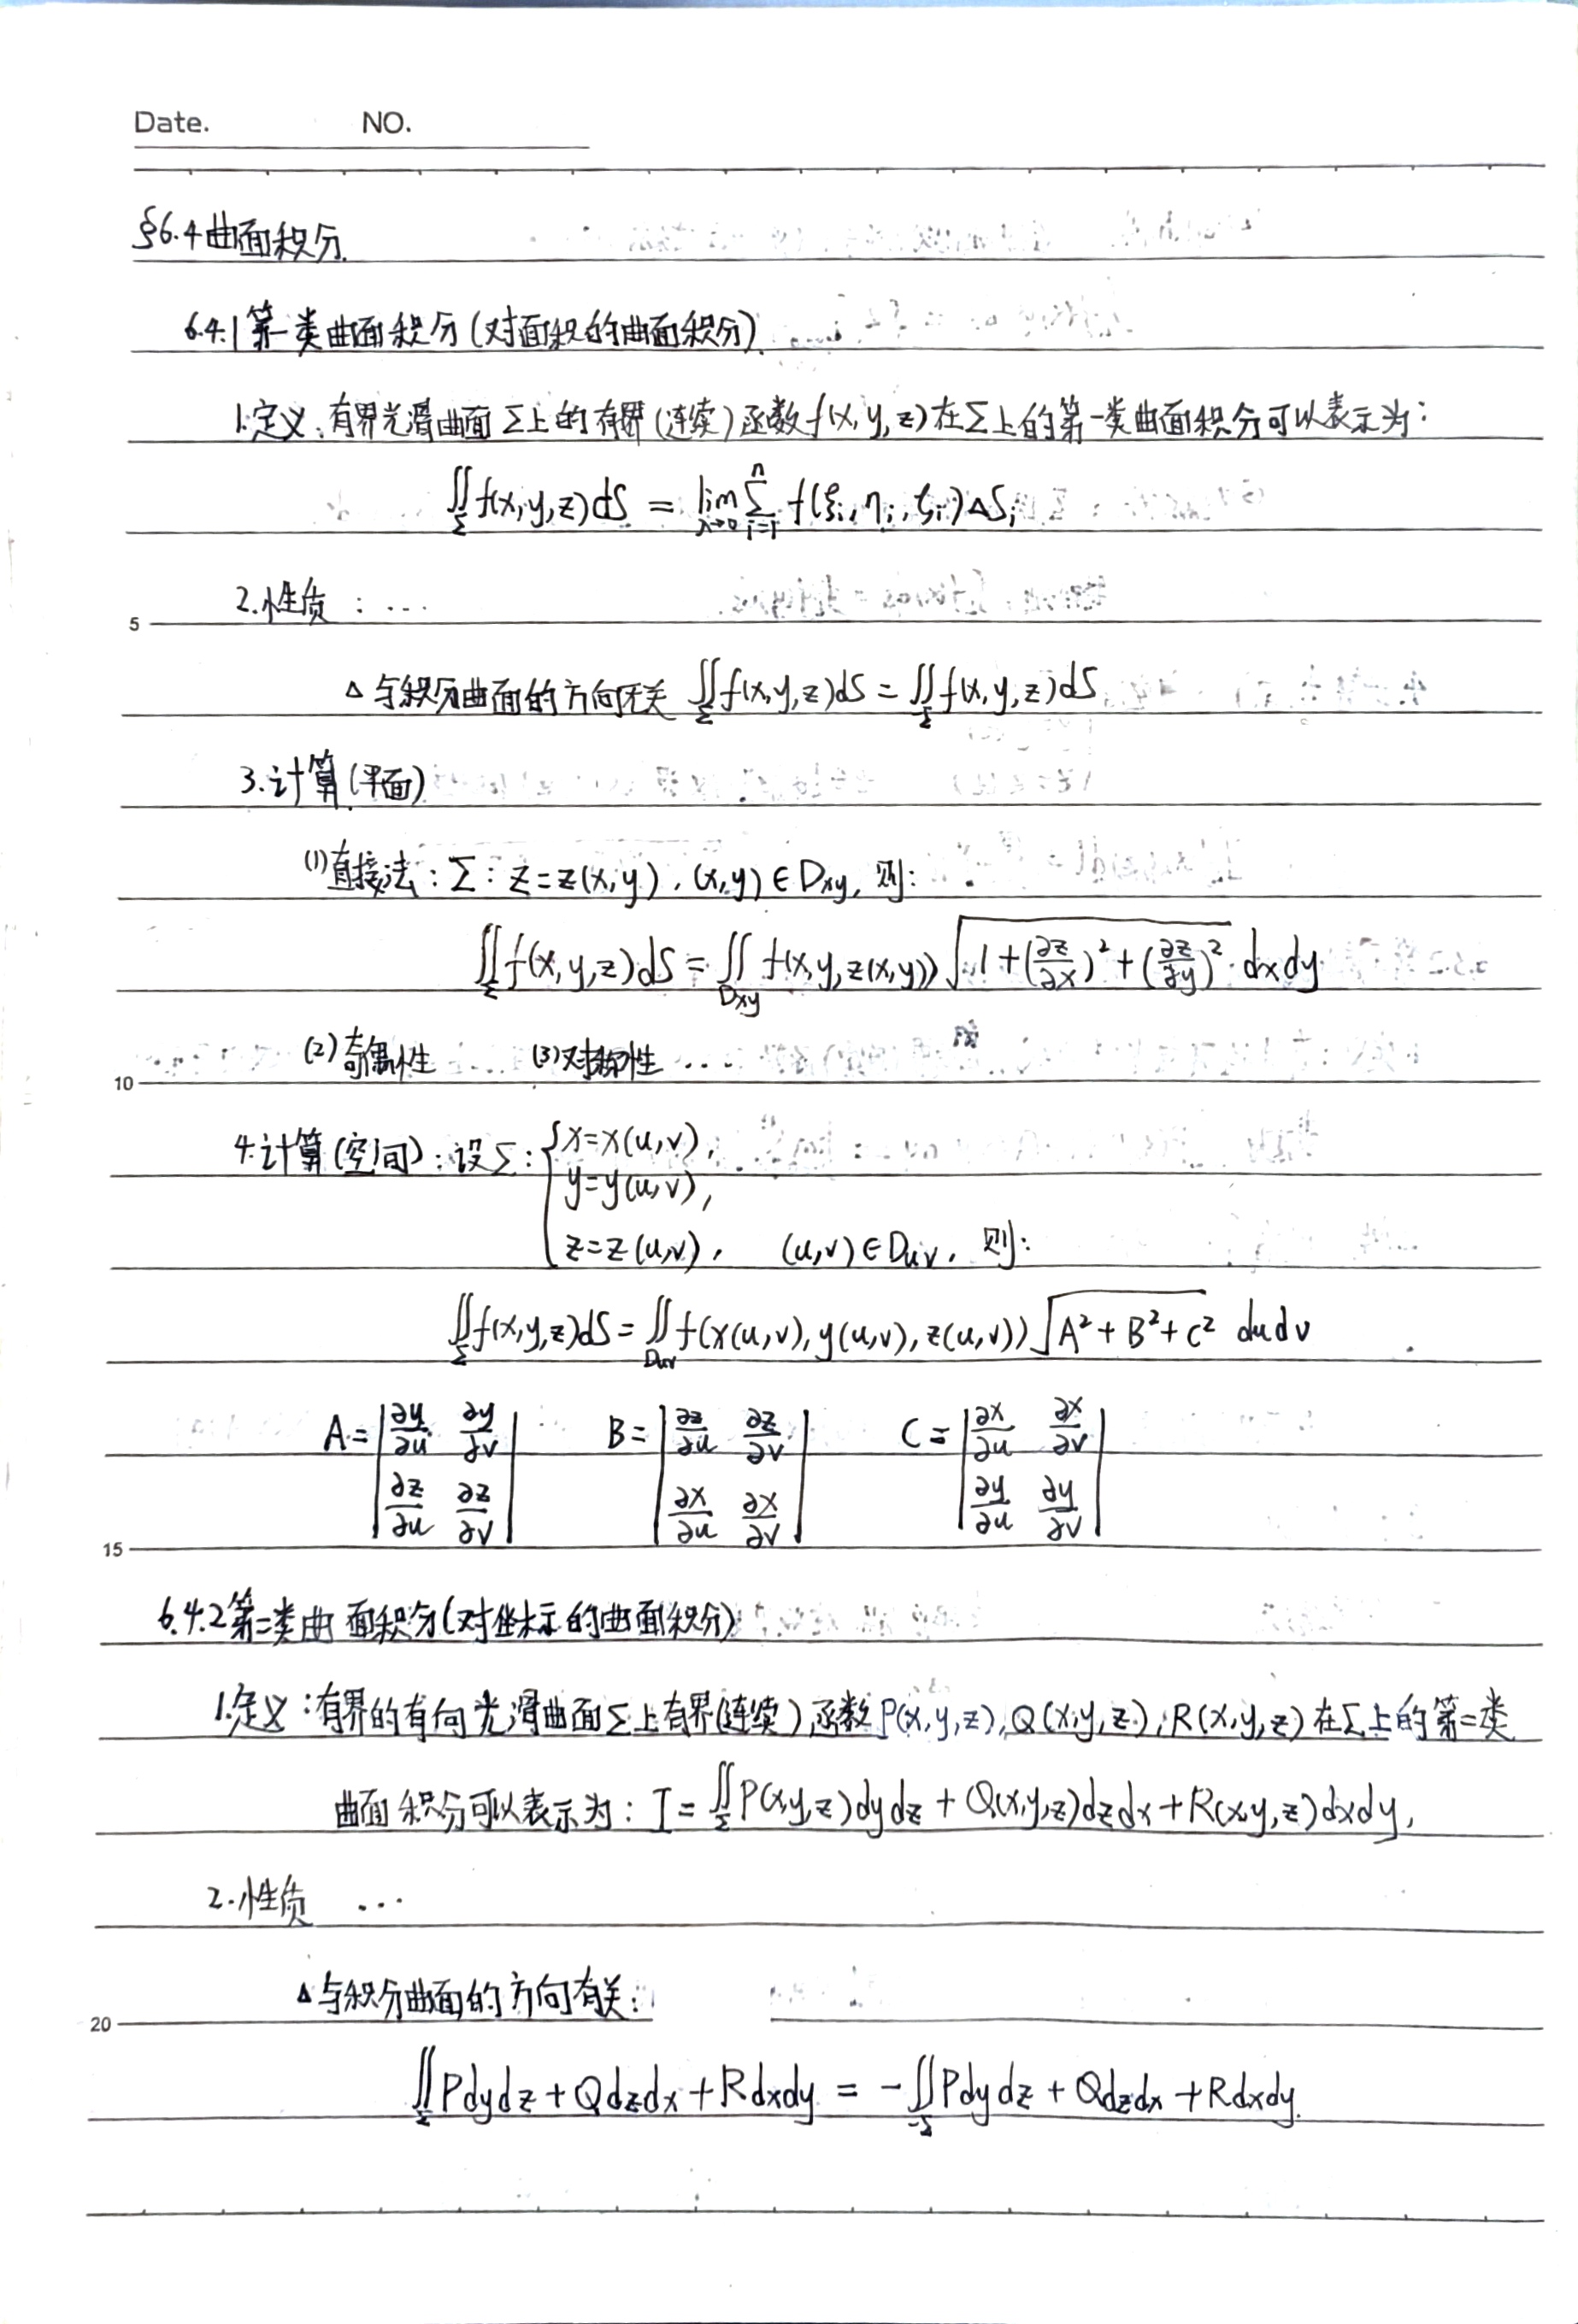 Date. NO.
§6.4 曲面积分.
6.4.1 第一类曲面积分(对面积的曲面积分)
1.定义:有界光滑曲面Σ上的有界(连续)函数f(x,y,z)在Σ上的第一类曲面积分可以表示为:
∬_Σ f(x,y,z)dS = lim_{λ→0} Σ_{i=1}^{n} f(ξᵢ, ηᵢ, ζᵢ)ΔSᵢ
2.性质 : ...
5
Δ 与积分曲面的方向无关 ∬_Σ f(x,y,z)dS = ∬_Σ f(x,y,z)dS
3.计算(平面)
(1)直接法: Σ: z=z(x,y), (x,y)∈D_xy, 则:
∬_Σ f(x,y,z)dS = ∬_{Dxy} f(x,y,z(x,y)) √(1+(∂z/∂x)²+(∂z/∂y)²) dxdy
(2)奇偶性 (3)对称性 ...
10
4.计算(空间): 设Σ: { x=x(u,v),
y=y(u,v),
z=z(u,v), (u,v)∈D_uv, 则:
∬_Σ f(x,y,z)dS = ∬_{Duv} f(x(u,v), y(u,v), z(u,v)) √(A²+B²+C²) dudv
A = |∂y/∂u ∂y/∂v| B = |∂z/∂u ∂z/∂v| C = |∂x/∂u ∂x/∂v|
|∂z/∂u ∂z/∂v| |∂x/∂u ∂x/∂v| |∂y/∂u ∂y/∂v|
15
6.4.2 第二类曲面积分(对坐标的曲面积分)
1.定义:有界的有向光滑曲面Σ上有界(连续)函数P(x,y,z),Q(x,y,z),R(x,y,z)在Σ上的第二类
曲面积分可以表示为: I = ∬_Σ P(x,y,z)dydz + Q(x,y,z)dzdx + R(x,y,z)dxdy,
2.性质 ...
Δ 与积分曲面的方向有关:
20
∬_Σ Pdydz + Qdzdx + Rdxdy = -∬_{-Σ} Pdydz + Qdzdx + Rdxdy.